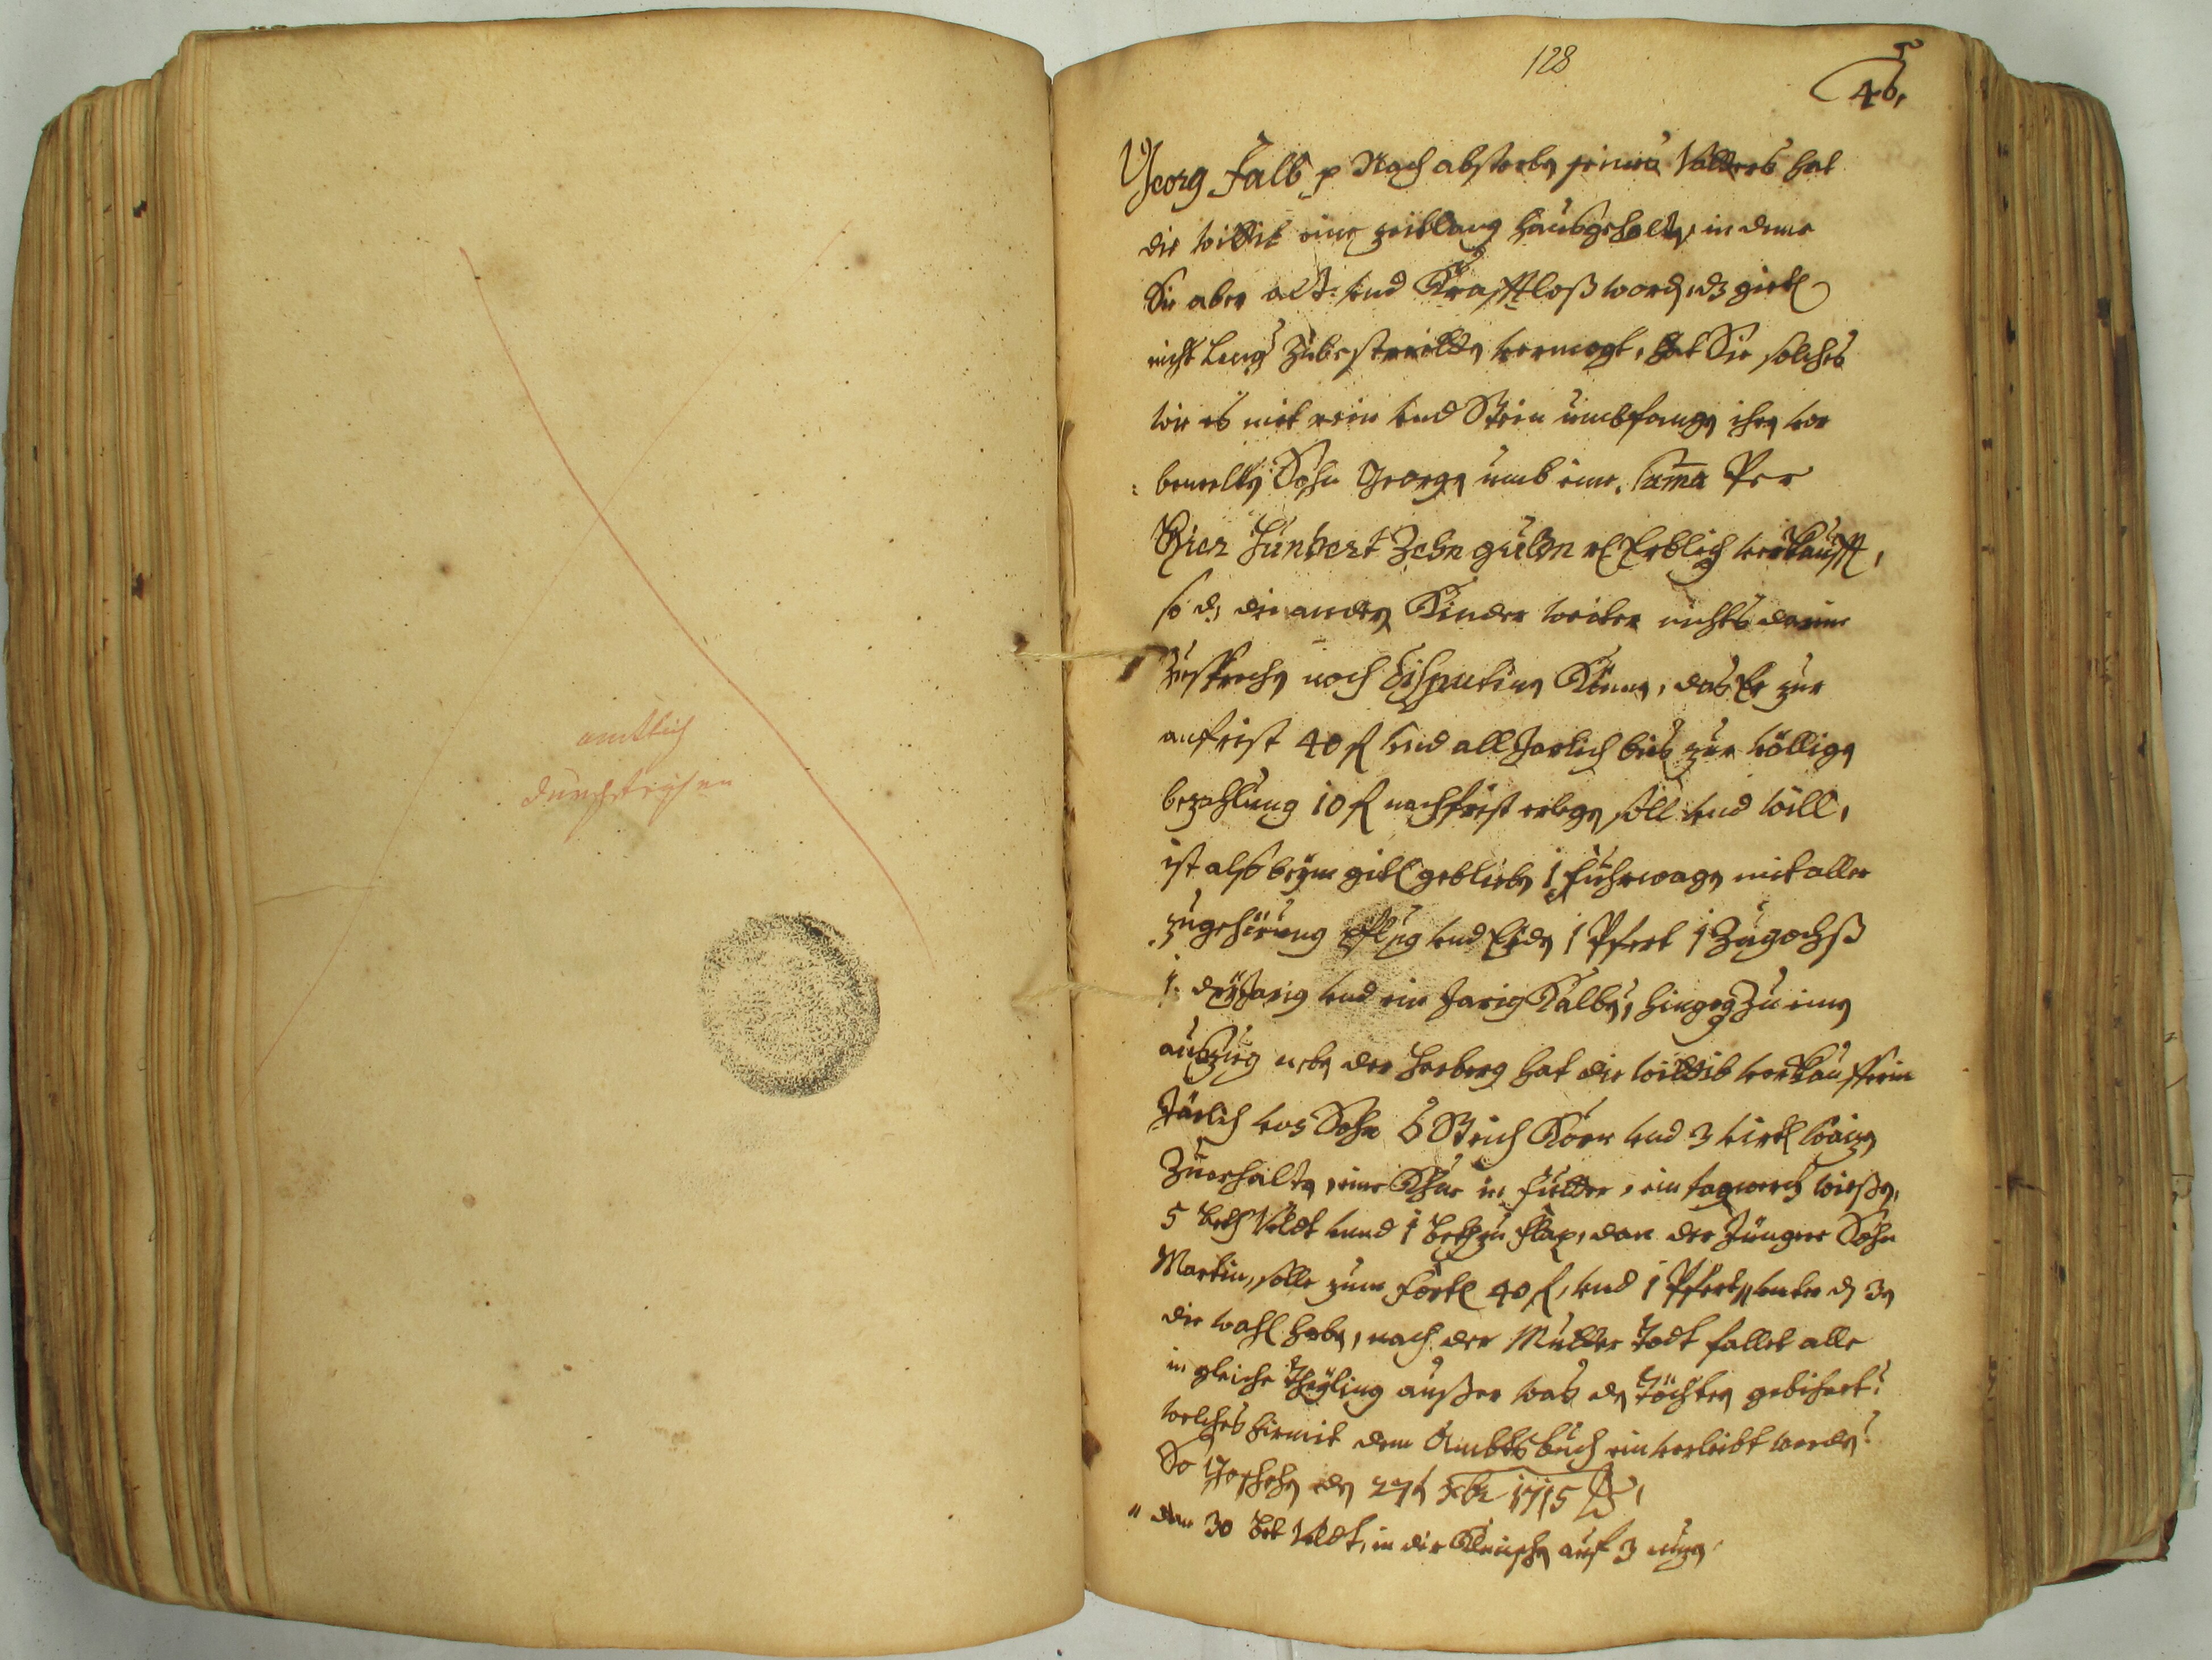 amtlich
durchstrichen
128
46,
Georg Falb p Nach absterben seines Vatters hat
die wittib eine zeitlang hausgehalten, in deme
Sie aber alt und Krafftloß worden, dz gietl
nicht lenger zubestreitten vermegt, hat Sie solches
wie es mit rein und Stein umbfangen ihren vor
bemelten Sohn Georgen umb eine Suma Per
Vier Hundert Zehn gulden rh Erblich verkaufft,
so dz die andern Kinder weiter nichts darin
zusprechen noch disputiren Können, das Er zur
anfrist 40 fl und all Jarlich bies zur völligen
bezahlung 10 fl nachfrist erlegen soll und will,
ist also beym gietl geblieben 1 Fuhrwagen mit aller
zugehörung pflug und Eiden 1 Pfert 1 Zugochß
1 dreyJarig und ein Jarig Kalben, hingegen zu einen
außzug neben der Herberg hat die wittib verkaufferin
Järlich vom Sohn 6 Strich Korn und 3 virtl waizen
Zuerhalten, eine Khue in Futter, ein tagwerch wießen,
5 beth Veldt und 1 beth zu flax, dan der Jüngere Sohn
Martin, solle zum Vortl 40 fl, und 1 Pfert, unter den 3en
die wahl haben, nach der Mutter Todt fallet alles
in gleiche Theyllung außer was den Töchtern gebihert,
welches hiermit dem Ambtsbuch ein verleibt worden.
So Geschehen den 27ten xbr 1715
dan 30 bet Veldt, in der auf 3